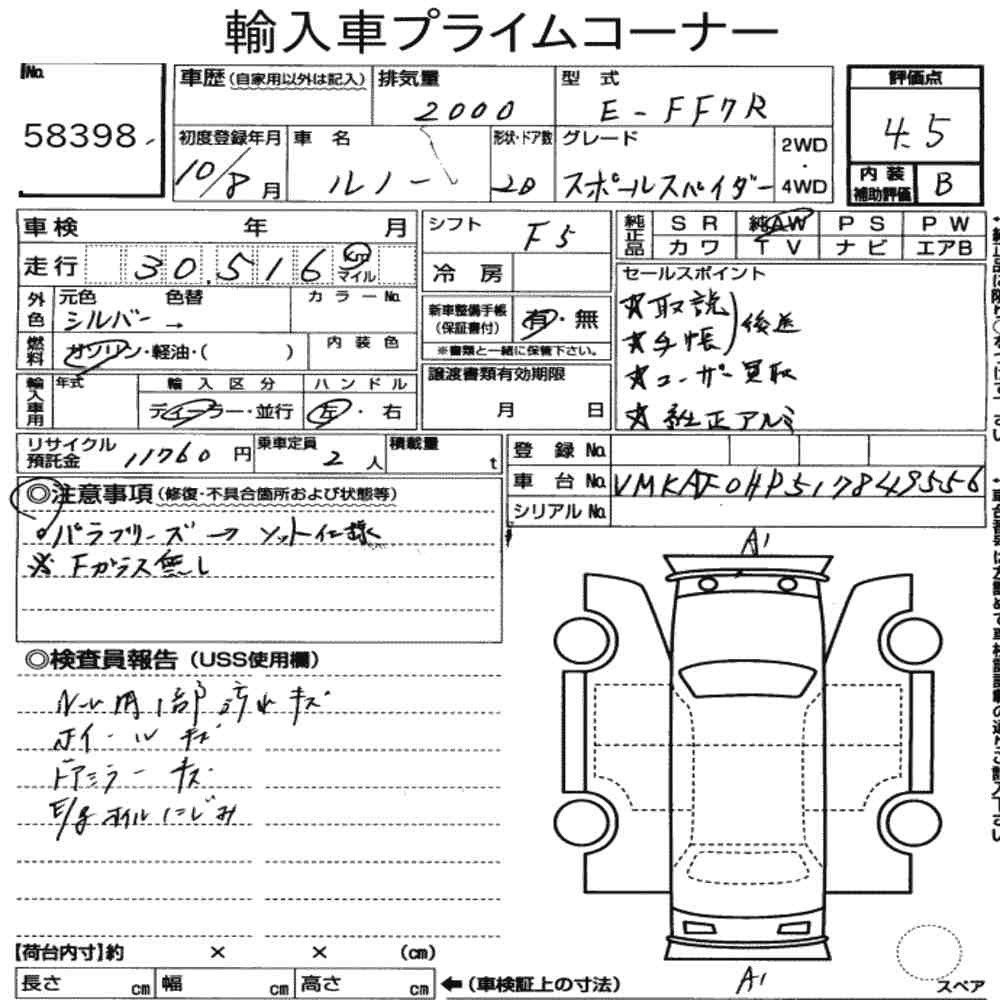 輸入車プライムコーナー
No.
58398
車歴(自家用以外は記入) 排気量 2000 型式 E-FF7R
評価点 4.5
初度登録年月 10/8月 車名 ルノー 形状・ドア数 2D グレード スポールスパイダー 2WD・4WD
内装補助評価 B
車検 年 月
シフト F5
純正品 SR 純AW PS PW
カワ TV ナビ エアB
走行 30,516 km マイル
冷房
セールスポイント
★取説
★手帳
後送
★ユーザー買取
★純正アルミ
外色 元色 シルバー 色替 → カラーNo.
新車整備手帳(保証書付) 有・無
※書類と一緒に保管下さい。
燃料 ガソリン・軽油・( ) 内装色
譲渡書類有効期限
月 日
輸入車用 年式 輸入区分 ハンドル
ディーラー・並行 左・右
リサイクル預託金 11760円 乗車定員 2人 積載量 t
登録No.
車台No. VMKAF0HP517849556
シリアルNo.
◎注意事項(修復・不具合箇所および状態等)
パラブリーズ→ソット仕様
※Fガラス無し
◎検査員報告(USS使用欄)
ルーム内1部汚れキズ
ホイールキズ
ドアミラーキズ
E/gオイルにじみ
A1
A1
スペア
【荷台内寸】約 × × (cm)
長さ cm 幅 cm 高さ cm ←(車検証上の寸法)